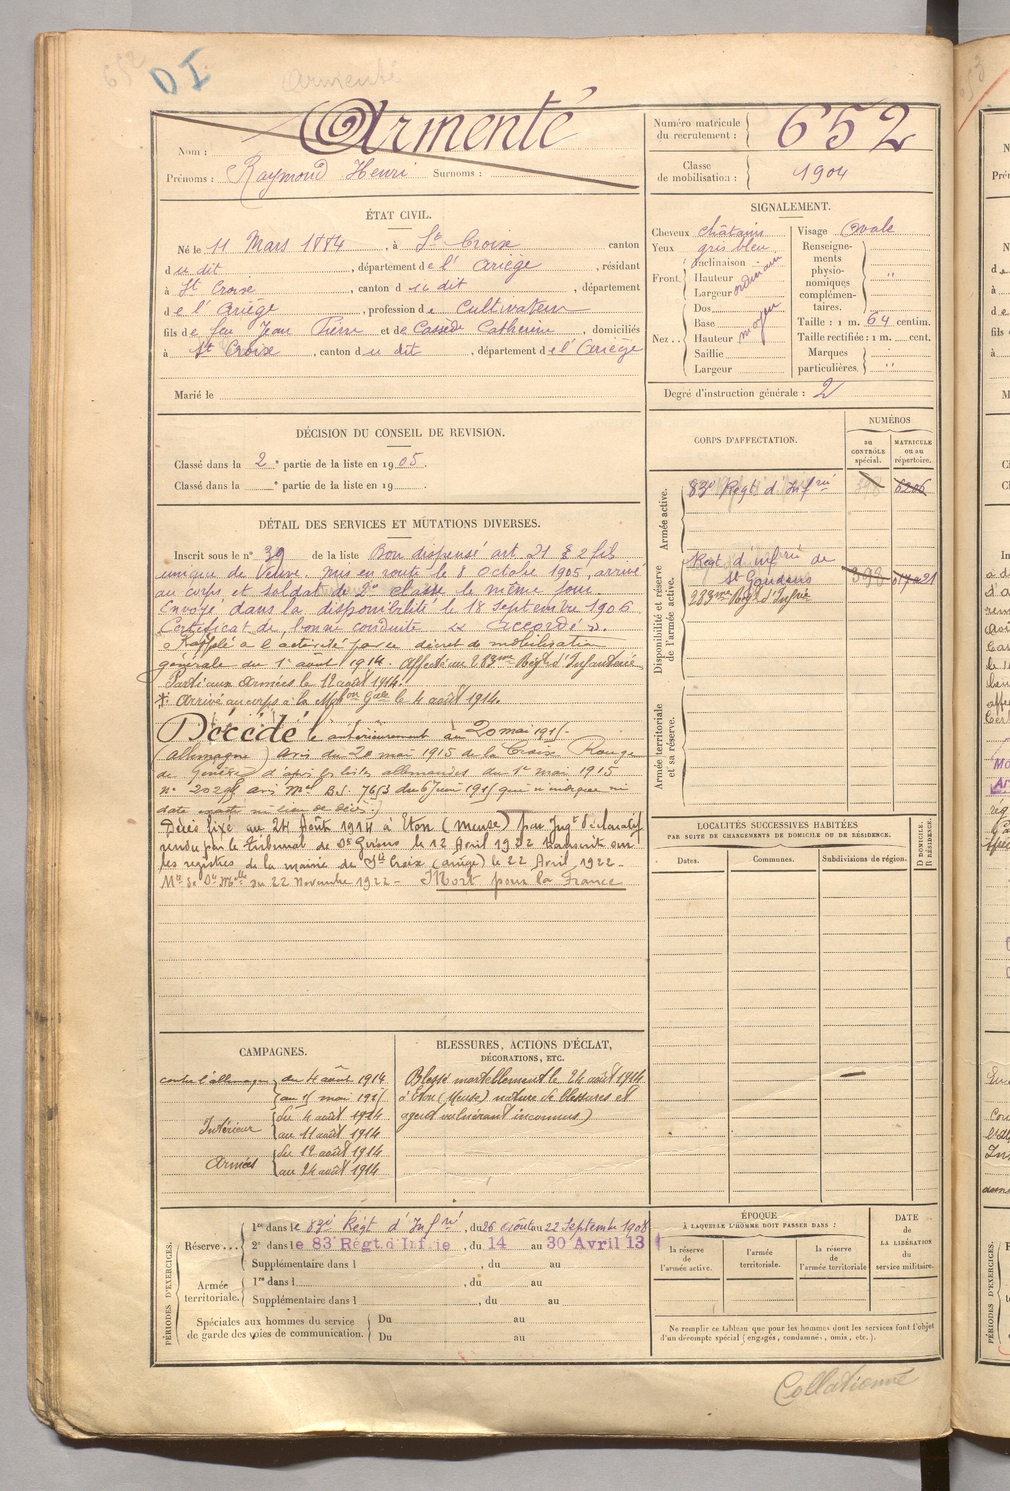 652
D I
Armenté
Nom : Armenté
Prénoms : Raymond Henri Surnoms :
Numéro matricule du recrutement : 652
Classe de mobilisation : 1904
ÉTAT CIVIL.
Né le 11 Mars 1884, à St Croix canton
du dit, département de l'Ariège, résidant
à St Croix, canton du dit, département
de l'Ariège, profession de Cultivateur
fils de feu Jean Pierre et de Cassède Catherine, domiciliés
à St Croix, canton du dit, département de l'Ariège
Marié le
SIGNALEMENT.
Cheveux châtains
Yeux gris bleu
Front Inclinaison
Hauteur
Largeur
ordinaire
Nez.. Dos
Base
Hauteur
Saillie
Largeur
moyen
Visage Ovale
Renseignements physionomiques complémentaires. "
Taille : 1 m. 64 centim.
Taille rectifiée : 1 m. cent.
Marques particulières. "
Degré d'instruction générale : 2
DÉCISION DU CONSEIL DE REVISION.
Classé dans la 2e partie de la liste en 1905.
Classé dans la e partie de la liste en 19
DÉTAIL DES SERVICES ET MUTATIONS DIVERSES.
Inscrit sous le n° 39 de la liste Bon dispensé art. 21 § 2 fils
unique de veuve. mis en route le 8 octobre 1905, arrivé
au corps et soldat de 2e classe le même jour.
Envoyé dans la disponibilité le 18 Septembre 1906
Certificat de bonne conduite " Accordé ".
Rappelé à l'activité par ce décret de mobilisation
générale du 1er août 1914. Affecté au 283me Régt d'Infanterie
Parti aux Armées le 12 août 1914.
* Arrivé au corps à la Mobon Gale le 4 août 1914.
Décédé le antérieurement au 20 mai 1915.
(allemagne) avis du 20 mai 1915 de la Croix Rouge
de Genève d'après les listes allemandes du 1er mai 1915
date exacte ni lieu de décès.)
Décès fixé au 24 Août 1914 à Eton (Meuse) par Jugt déclaratif
rendu par le Tribunal de St Girons le 12 Avril 1922 transcrit sur
les registres de la mairie de Ste Croix (Ariège) le 22 Avril 1922 -
du 22 Novembre 1922 - Mort pour la France
CORPS D'AFFECTATION.
NUMÉROS
au CONTRÔLE spécial.
MATRICULE ou au répertoire.
Armée active.
83e Régt d'Infrie 6206
Disponibilité et réserve de l'armée active.
Régt d'infrie de
St Gaudens 398
283me Régt d'Infrie
Armée territoriale et sa réserve.
LOCALITÉS SUCCESSIVES HABITÉES
PAR SUITE DE CHANGEMENTS DE DOMICILE OU DE RÉSIDENCE.
Dates. Communes. Subdivisions de région.
D DOMICILE. R RÉSIDENCE.
CAMPAGNES.
contre l'allemagne du 4 août 1914
Intérieur du 4 août 1914
au 11 août 1914
Armées du 12 août 1914
au 24 août 1914
BLESSURES, ACTIONS D'ÉCLAT,
DÉCORATIONS, ETC.
Blessé mortellement le 24 août 1914
à Eton (Meuse) nature de blessures et
agent vulnérant inconnus)
PÉRIODES D'EXERCICES.
Réserve... 1re dans le 83e Régt d'Infrie, du 26 Août au 22 Septembre 1908
2e dans le 83e Régt. d'Infrie, du 14 au 30 Avril 13
Supplémentaire dans l , du au
Armée territoriale. 1re dans l , du au
Supplémentaire dans l , du au
Spéciales aux hommes du service de garde des voies de communication. Du au
Du au
ÉPOQUE
À LAQUELLE L'HOMME DOIT PASSER DANS :
la réserve de l'armée active.
l'armée territoriale.
la réserve de l'armée territoriale
DATE de LA LIBÉRATION du service militaire.
Ne remplir ce tableau que pour les hommes dont les services font l'objet
d'un décompte spécial (engagés, condamnés, omis, etc.).
Collationné